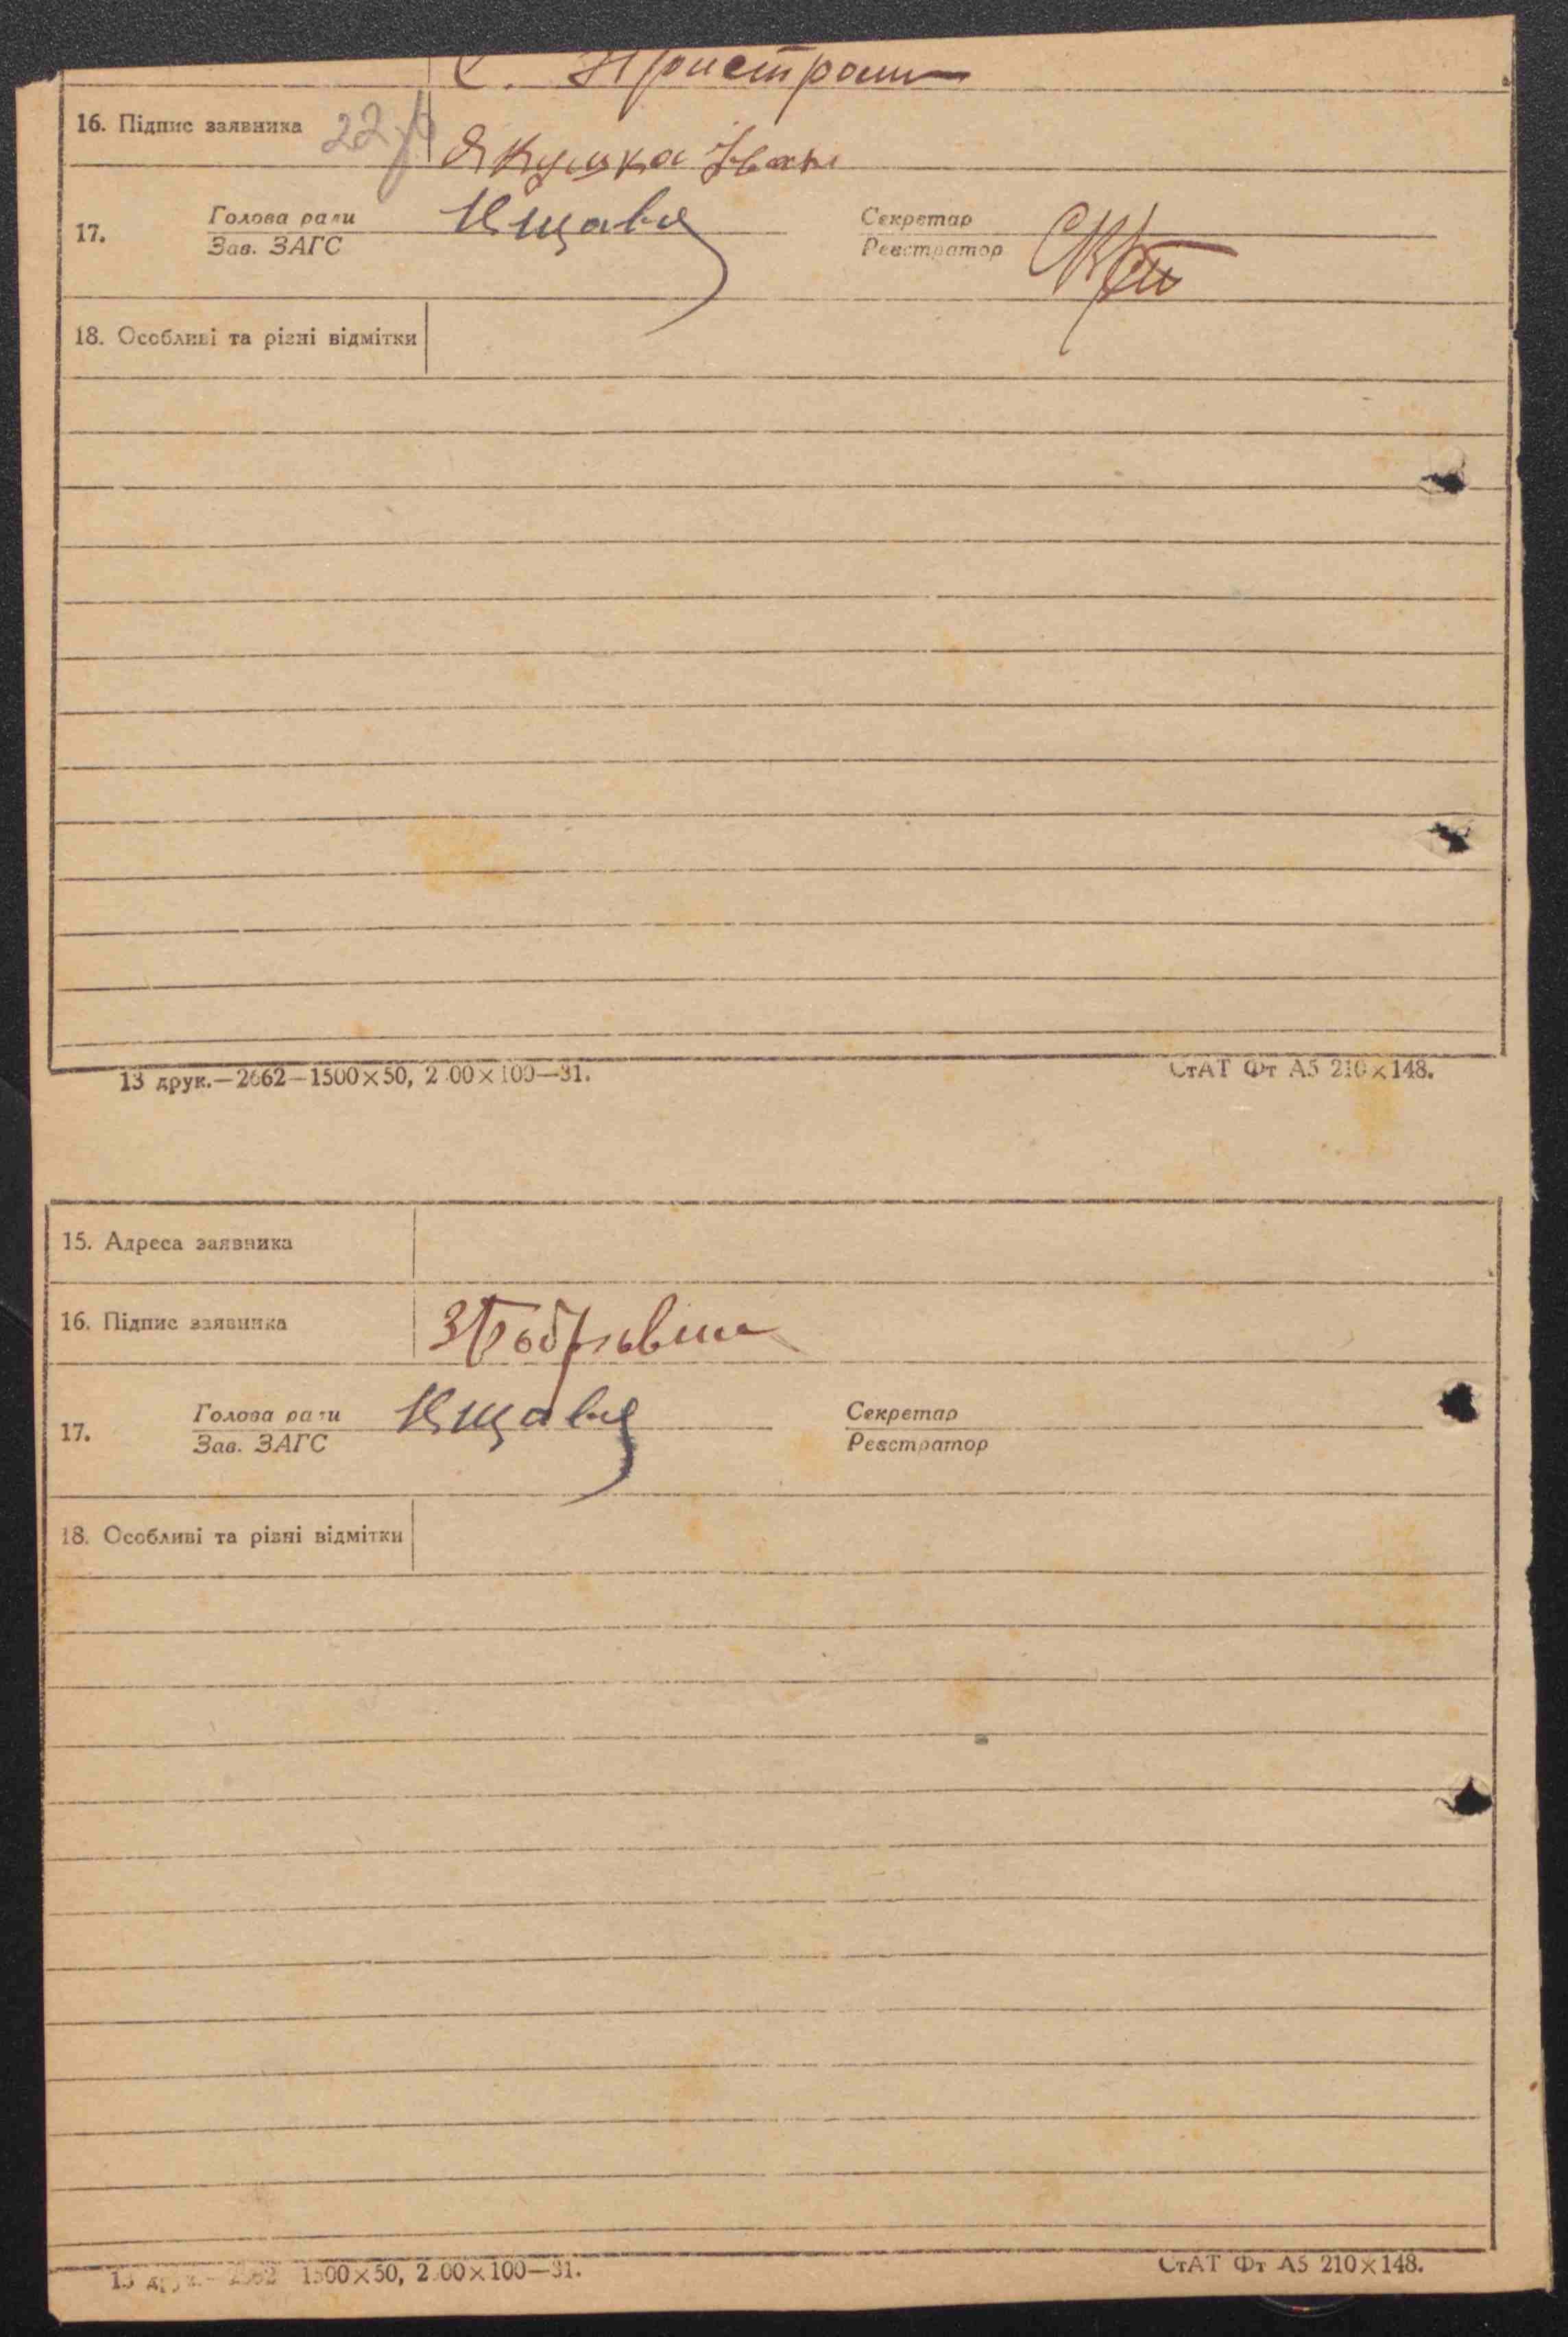 С. Пристроми
16. Підпис заявника Якушка Іван
17. Голова ради Секретар
Зав. ЗАГС Реєстратор
18. Особливі та різні відмітки
13 друк.—2662—1500×50, 2 00×100—31. СтАТ Фт А5 210×148.
15. Адреса заявника
16. Підпис заявника
17. Голова ради Секретар
Зав. ЗАГС Реєстратор
18. Особливі та різні відмітки
13 друк.—2662 1500×50, 2 00×100—31. СтАТ Фт А5 210×148.